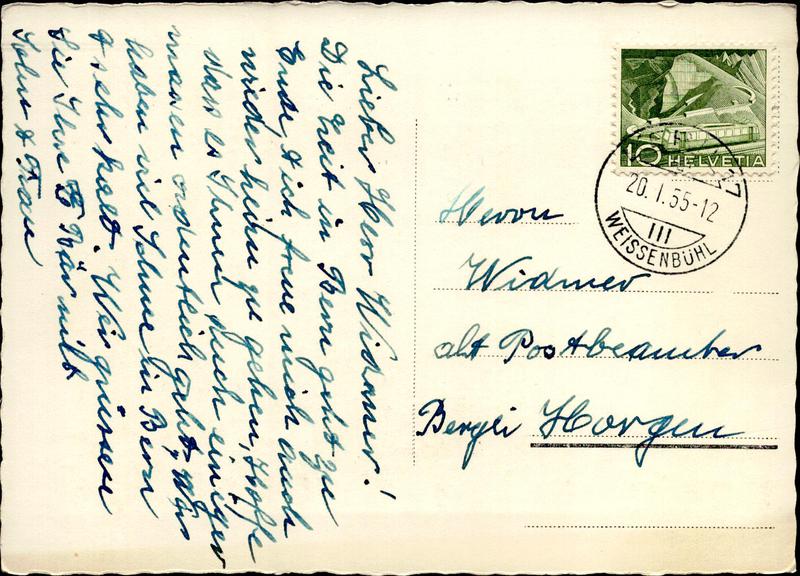 Lieber Herr Widmer!
Die Zeit in Bern geht zu
Ende & ich freue mich auch
wieder heim zu gehen, Hoffe
das es Ihnen auch einiger
massen ordentlich geht, Wir
haben viel Schnee in Bern
& sehr kalt. Wir grüssen
Sie Ihre E Bär mit
Sohn & Frau
10 HELVETIA
20. I. 55-12
III
WEISSENBÜHL
Herrn
Widmer
alt Postbeamter
Bergli Horgen